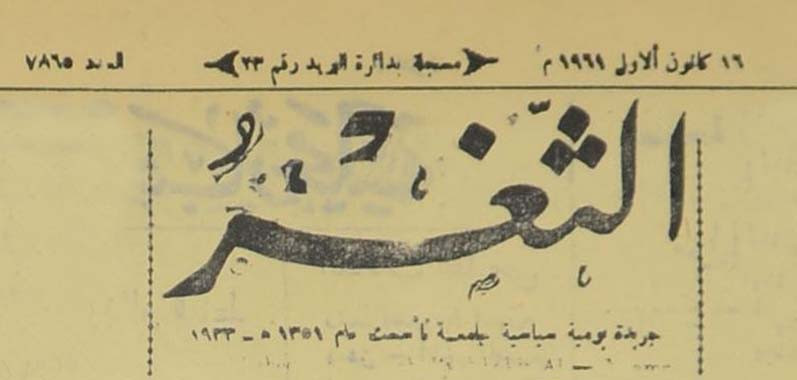 ١٦ كانون الاول ١٩٦١ م مسجلة بدائرة البريد رقم ٢٣ العدد ٧٨٦٥
الثغر
جريدة يومية سياسية جامعة تأسست عام ١٣٥١ ه - ١٩٣٣